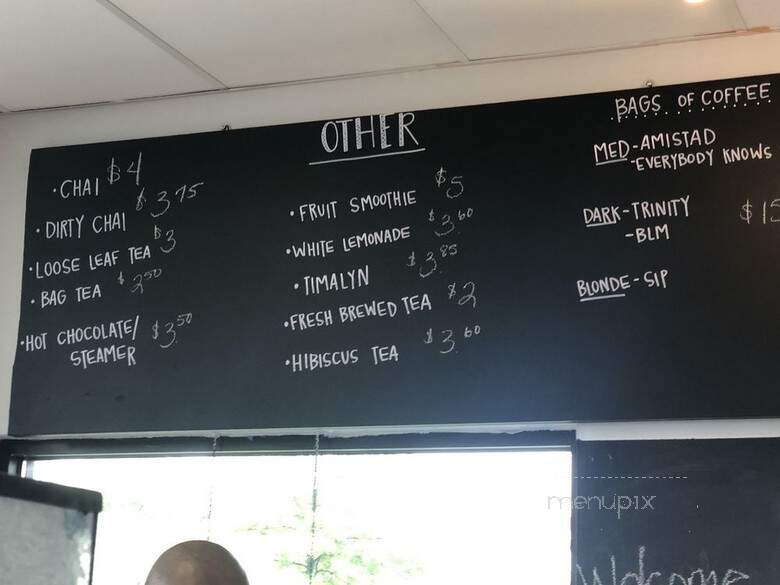 OTHER
· CHAI $4
· DIRTY CHAI $3.75
· LOOSE LEAF TEA $3
· BAG TEA $2.50
· HOT CHOCOLATE/ $3.50
STEAMER
· FRUIT SMOOTHIE $5
· WHITE LEMONADE $3.60
· TIMALYN $3.85
· FRESH BREWED TEA $2
· HIBISCUS TEA $3.60
BAGS OF COFFEE
MED - AMISTAD
- EVERYBODY KNOWS
DARK - TRINITY $15
- BLM
BLONDE - SIP
menupix
Welcome